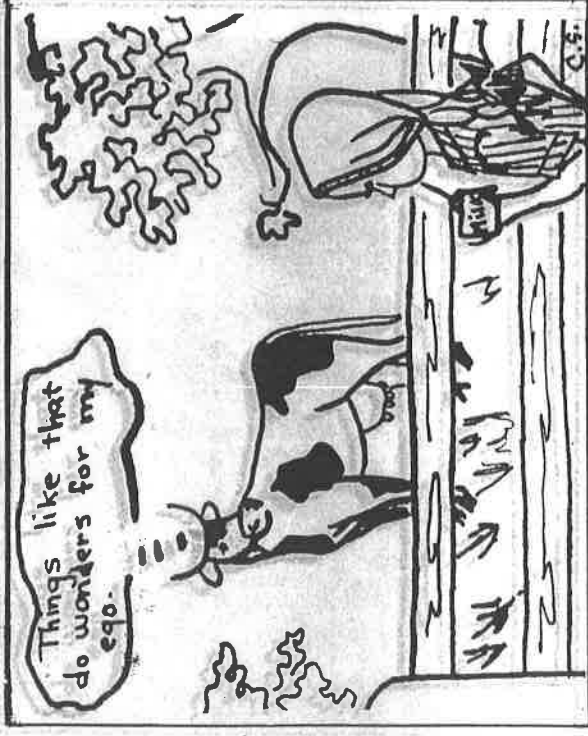 Things like that
do wonders for my
ego.
Milk
C.S.